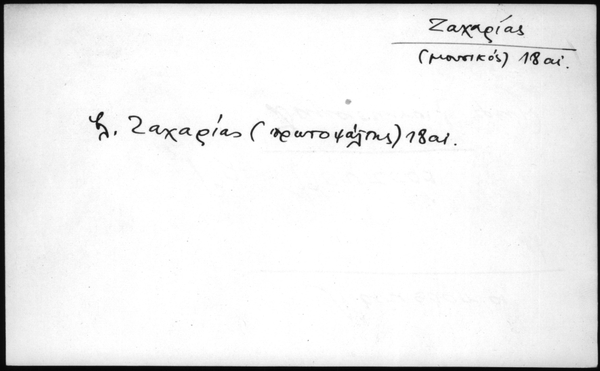 Ζαχαρίας
(μουσικός) 18 αι.
βλ. Ζαχαρίας (πρωτοψάλτης) 18 αι.